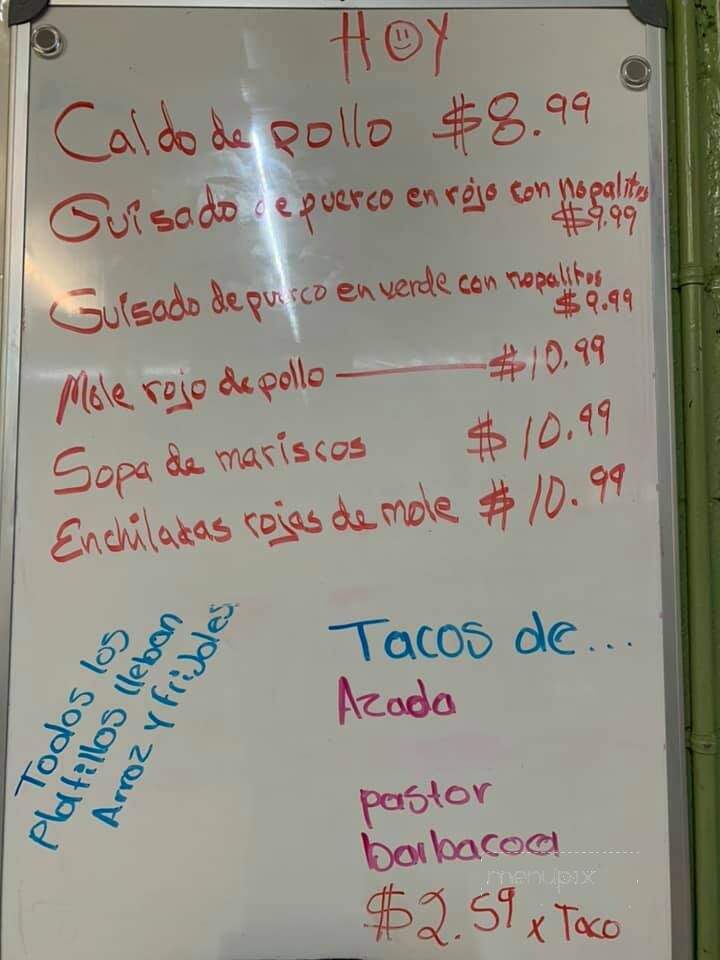 HOY
Caldo de pollo $8.99
Guisado de puerco en rojo con nopalitos
$9.99
Guisado de puerco en verde con nopalitos
$9.99
Mole rojo de pollo $10.99
Sopa de mariscos $10.99
Enchiladas rojas de mole $10.99
Todos los
Platillos lleban
Arroz y frijoles
Tacos de...
Azada
pastor
barbacoa
menupix
$2.59 x Taco